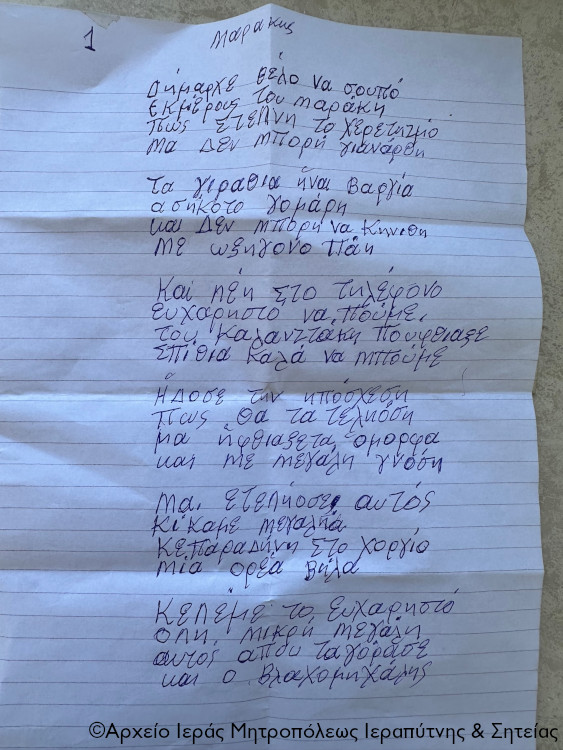 1
Μαρακης
Δήμαρχε θέλο να σουπό
Εκμέρους του Μαράκη
Πώς Στέλνη το χερετησμό
Μα Δεν μπορή γιανάρθη
Τα γιραθια ήναι Βαργία
ασήκοτο γομάρη
και Δεν μπορή να Κηνιθη
με ωξηγόνο πάη
Και λέη στο τηλέφονο
ευχαρηστο να πούμε,
του Καλαντζάκη πουφθιαξε
Σπίθια καλά να μπούμε
Ήδοσε την ηπόσχεση
πως θα τα τεληόση
μα ήφθιαξετα όμορφα
και με μεγάλη γνόση
Μα, ετελήοσε αυτός
κι'καμε μεγαληά
Κεπαραδήνη στο χοργίο
μία ορέα βήλα
Κελέμε το ευχαρηστό
όλη, μικρή μεγάλη
αυτός απου ταγόρασε
και ο Βλαχομηχάλης
©Αρχείο Ιεράς Μητροπόλεως Ιεραπύτνης & Σητείας